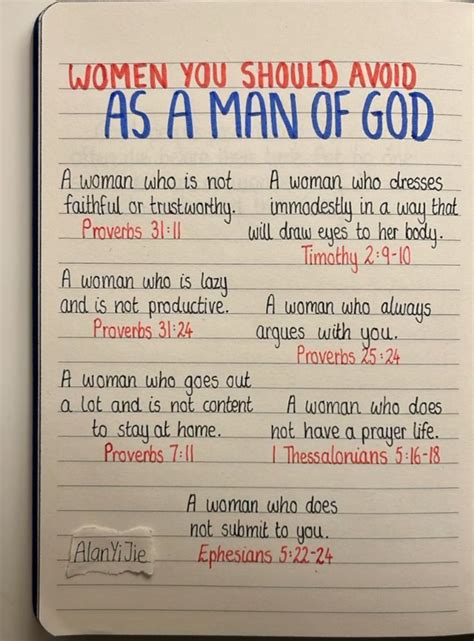 WOMEN YOU SHOULD AVOID
AS A MAN OF GOD
A woman who is not
faithful or trustworthy.
Proverbs 31:11
A woman who dresses
immodestly in a way that
will draw eyes to her body.
Timothy 2:9-10
A woman who is lazy
and is not productive.
Proverbs 31:24
A woman who always
argues with you.
Proverbs 25:24
A woman who goes out
a lot and is not content
to stay at home.
Proverbs 7:11
A woman who does
not have a prayer life.
1 Thessalonians 5:16-18
A woman who does
not submit to you.
Ephesians 5:22-24
AlanYiJie